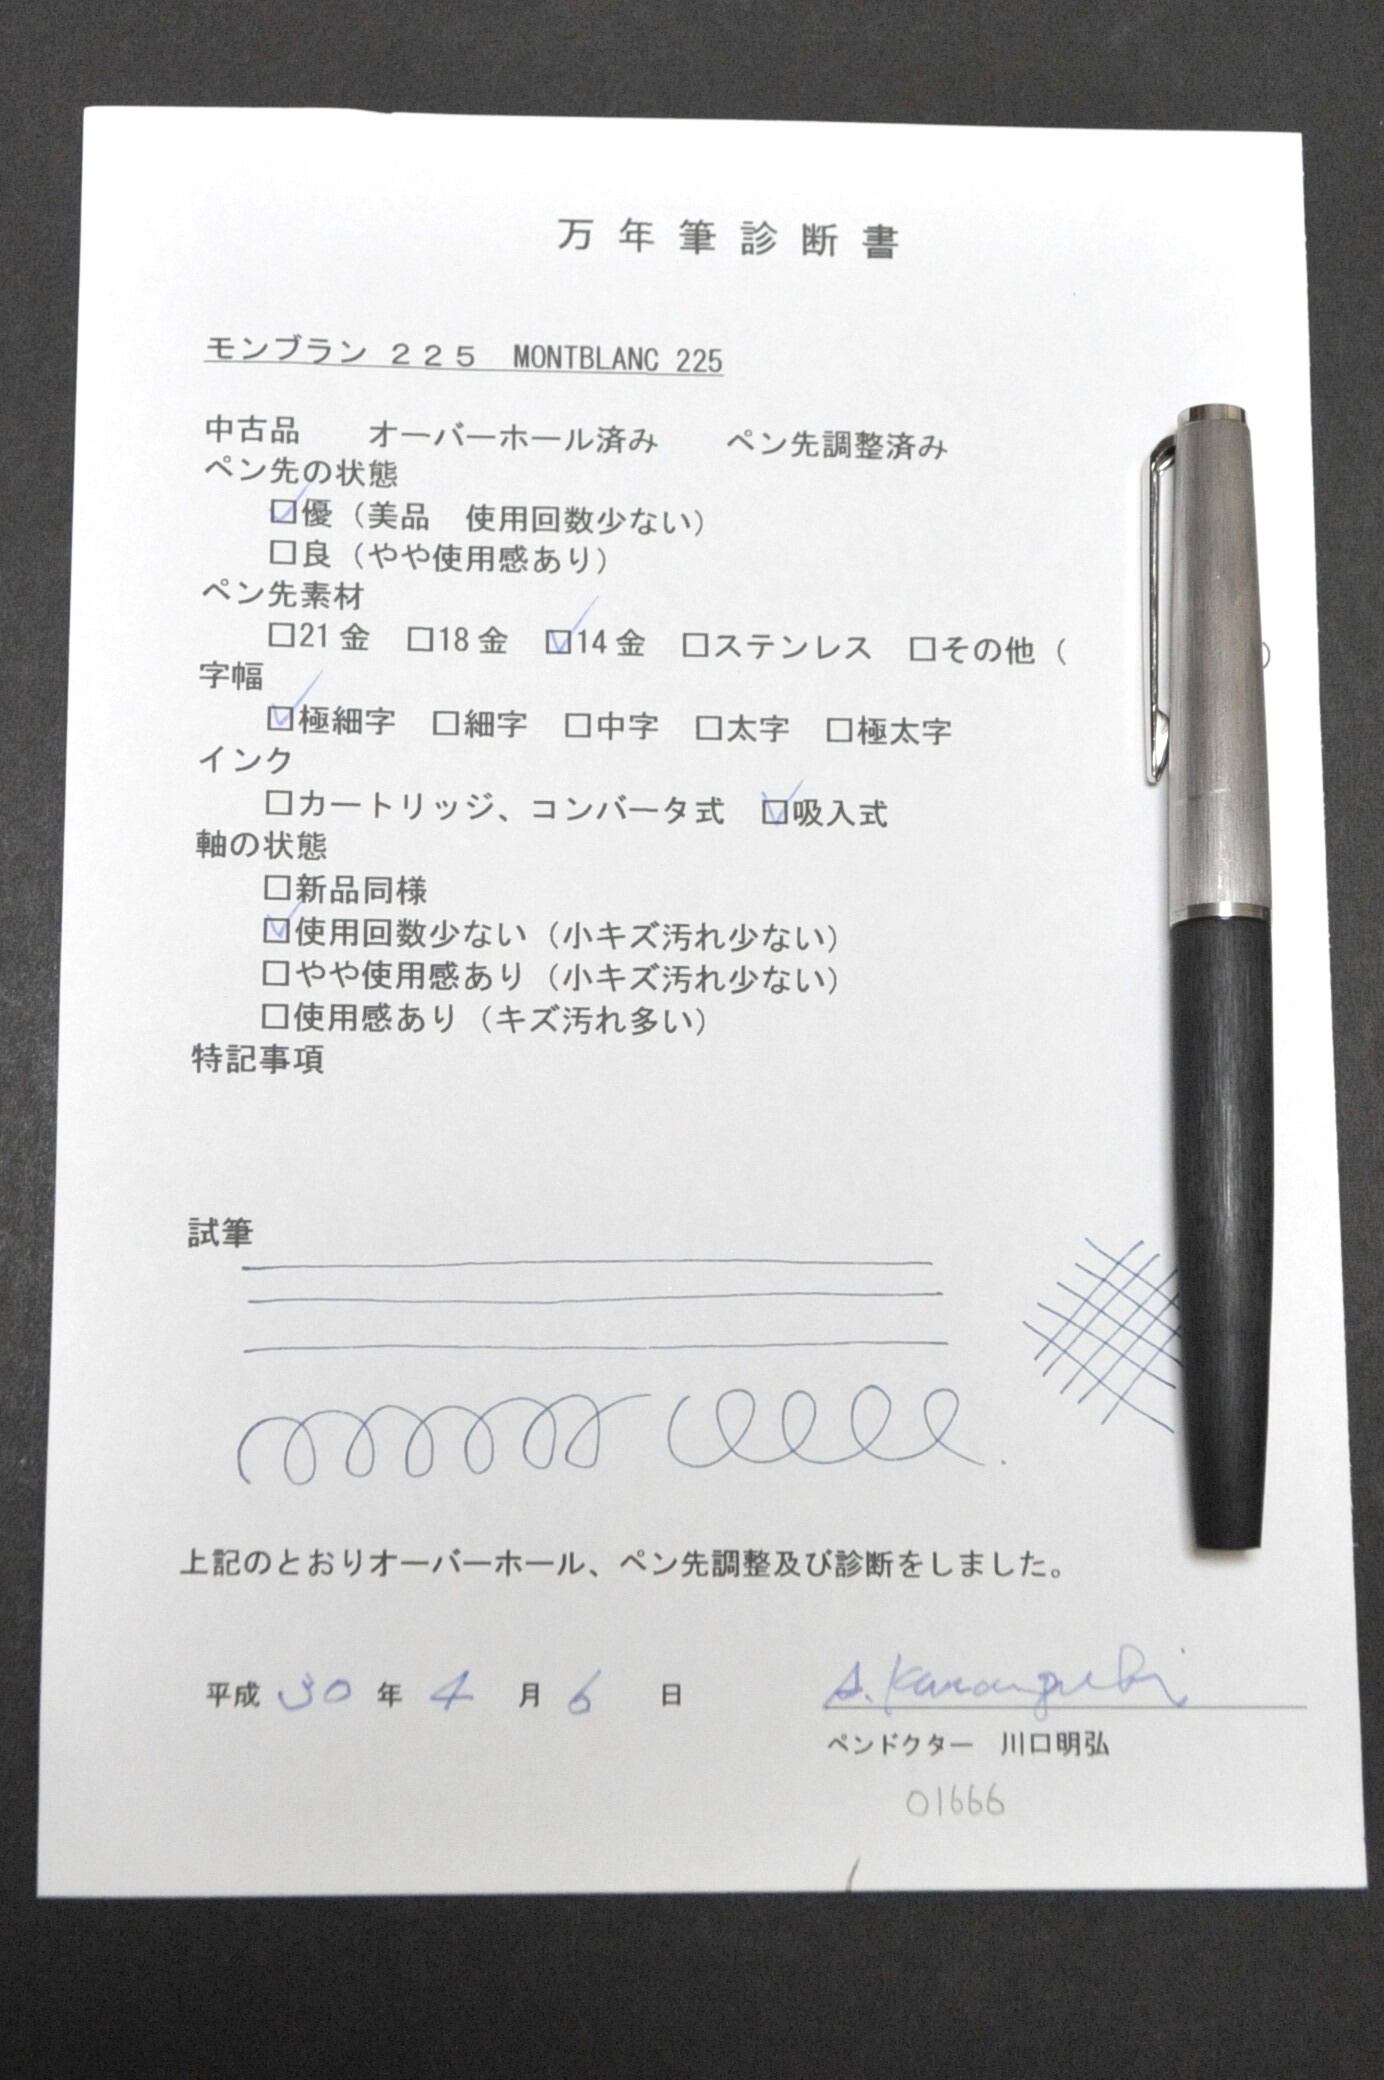 万年筆診断書
モンブラン ２２５ MONTBLANC 225
中古品 オーバーホール済み ペン先調整済み
ペン先の状態
☑優（美品 使用回数少ない）
□良（やや使用感あり）
ペン先素材
□21金 □18金 ☑14金 □ステンレス □その他（ ）
字幅
☑極細字 □細字 □中字 □太字 □極太字
インク
□カートリッジ、コンバータ式 ☑吸入式
軸の状態
□新品同様
☑使用回数少ない（小キズ汚れ少ない）
□やや使用感あり（小キズ汚れ少ない）
□使用感あり（キズ汚れ多い）
特記事項
試筆
上記のとおりオーバーホール、ペン先調整及び診断をしました。
平成 30 年 4 月 6 日
A. Kawaguchi
ペンドクター 川口明弘
01666